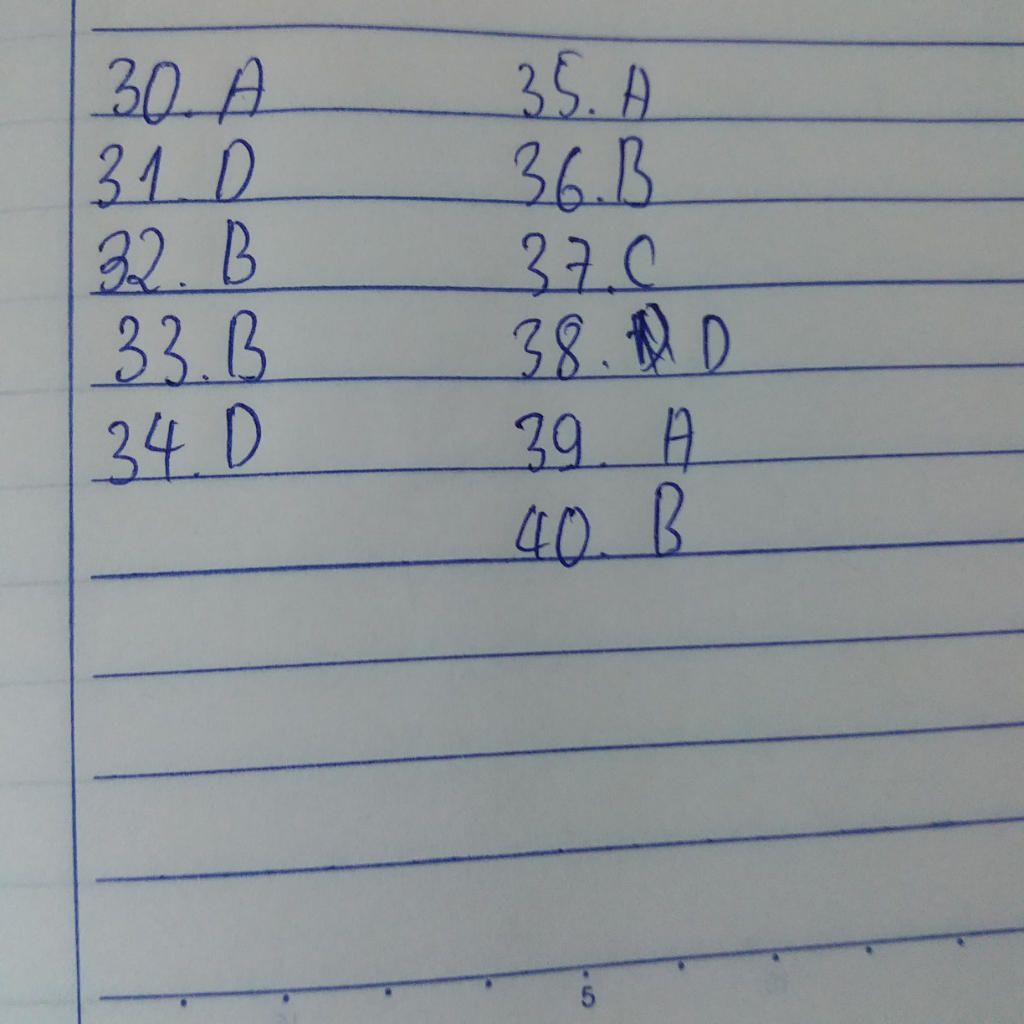 30. A
31. D
32. B
33. B
34. D
35. A
36. B
37. C
38. D
39. A
40. B
5